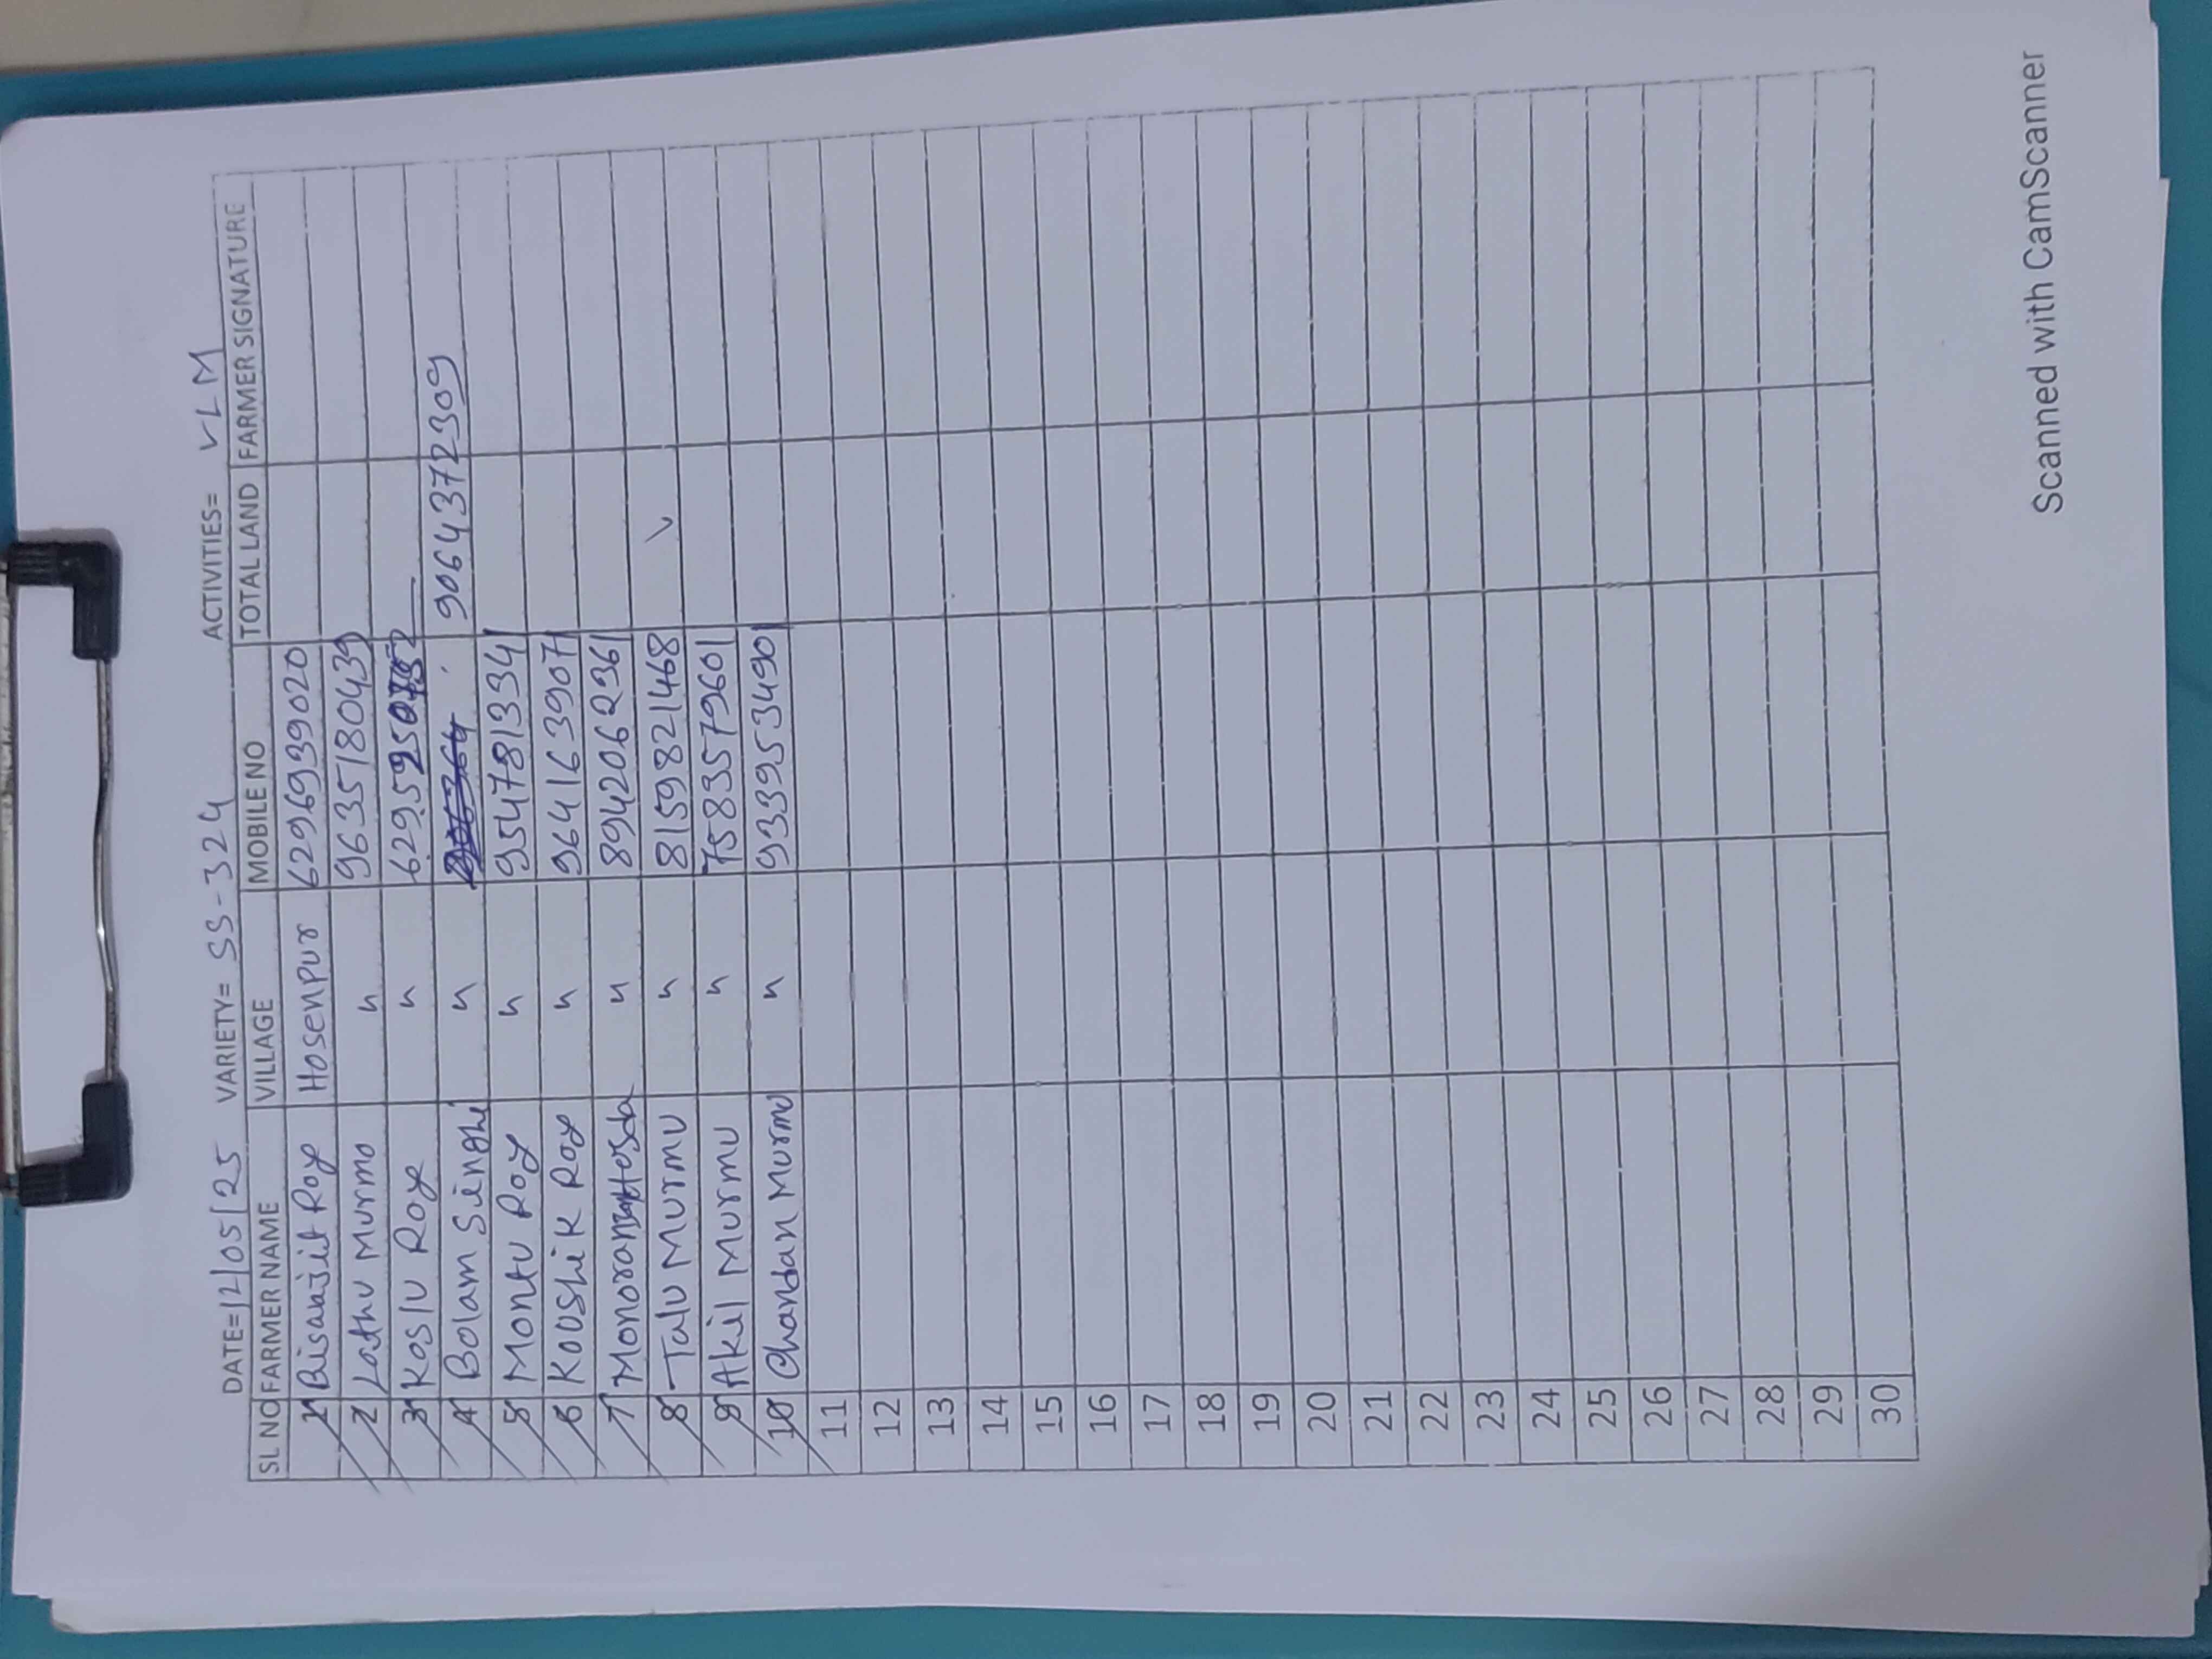 DATE=12/05/25 VARIETY= SS-324 ACTIVITIES= VLM
SL NO FARMER NAME VILLAGE MOBILE NO TOTAL LAND FARMER SIGNATURE
1 Biswajit Roy Hosenpur 6296939020
2 Lathu Murmo " 9635180439
3 Koslu Roy " 629595
4 Bolam Singhi " 9064372309
5 Montu Roy " 9547813341
6 Koushik Roy " 9641639071
7 " 8942062361
8 Talu Murmu " 8159821468 ✓
9 Akil Murmu " 7583579601
10 Chandan Murmu " 9339534901
11
12
13
14
15
16
17
18
19
20
21
22
23
24
25
26
27
28
29
30
Scanned with CamScanner